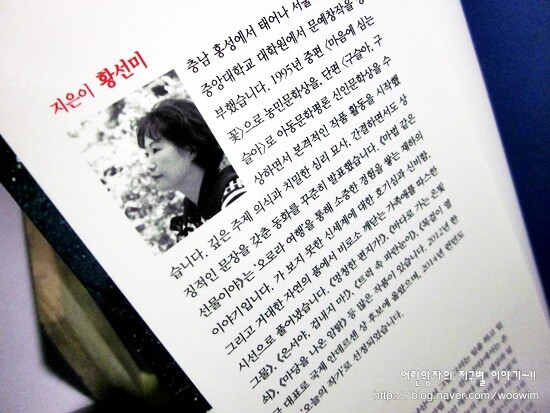 지은이 황선미
충남 홍성에서 태어나 서울
중앙대학교 대학원에서 문예창작을
부했습니다. 1995년 중편 《마음에 심는
꽃》으로 농민문학상을, 단편 《구슬아, 구
슬아》로 아동문학평론 신인문학상을 수
상하면서 본격적인 작품 활동을 시작했
습니다. 깊은 주제 의식과 치밀한 심리 묘사, 간결하면서도 상
징적인 문장을 갖춘 동화를 꾸준히 발표했습니다. 《마법 같은
선물이야》는 '오로라 여행'을 통해 소중한 경험을 쌓는 재하의
이야기입니다. 가 보지 못한 신세계에 대한 호기심과 신비함,
그리고 거대한 자연의 품에서 비로소 깨닫는 가족애를 따스한
시선으로 풀어냈습니다. 《멍청한 편지가!》, 《바다로 가는 은빛
그물》, 《은서야, 겁내지 마!》, 《트럭 속 파란눈이》, 《목걸이 열
쇠》, 《마당을 나온 암탉》 등 많은 작품이 있습니다. 2012년 한
국 대표로 국제 안데르센 상 후보에 올랐으며, 2014년 런던도
'오늘의 작가'로 선정되었습니다.
어린왕자의 지구별 이야기~!!
http://blog.naver.com/woowim